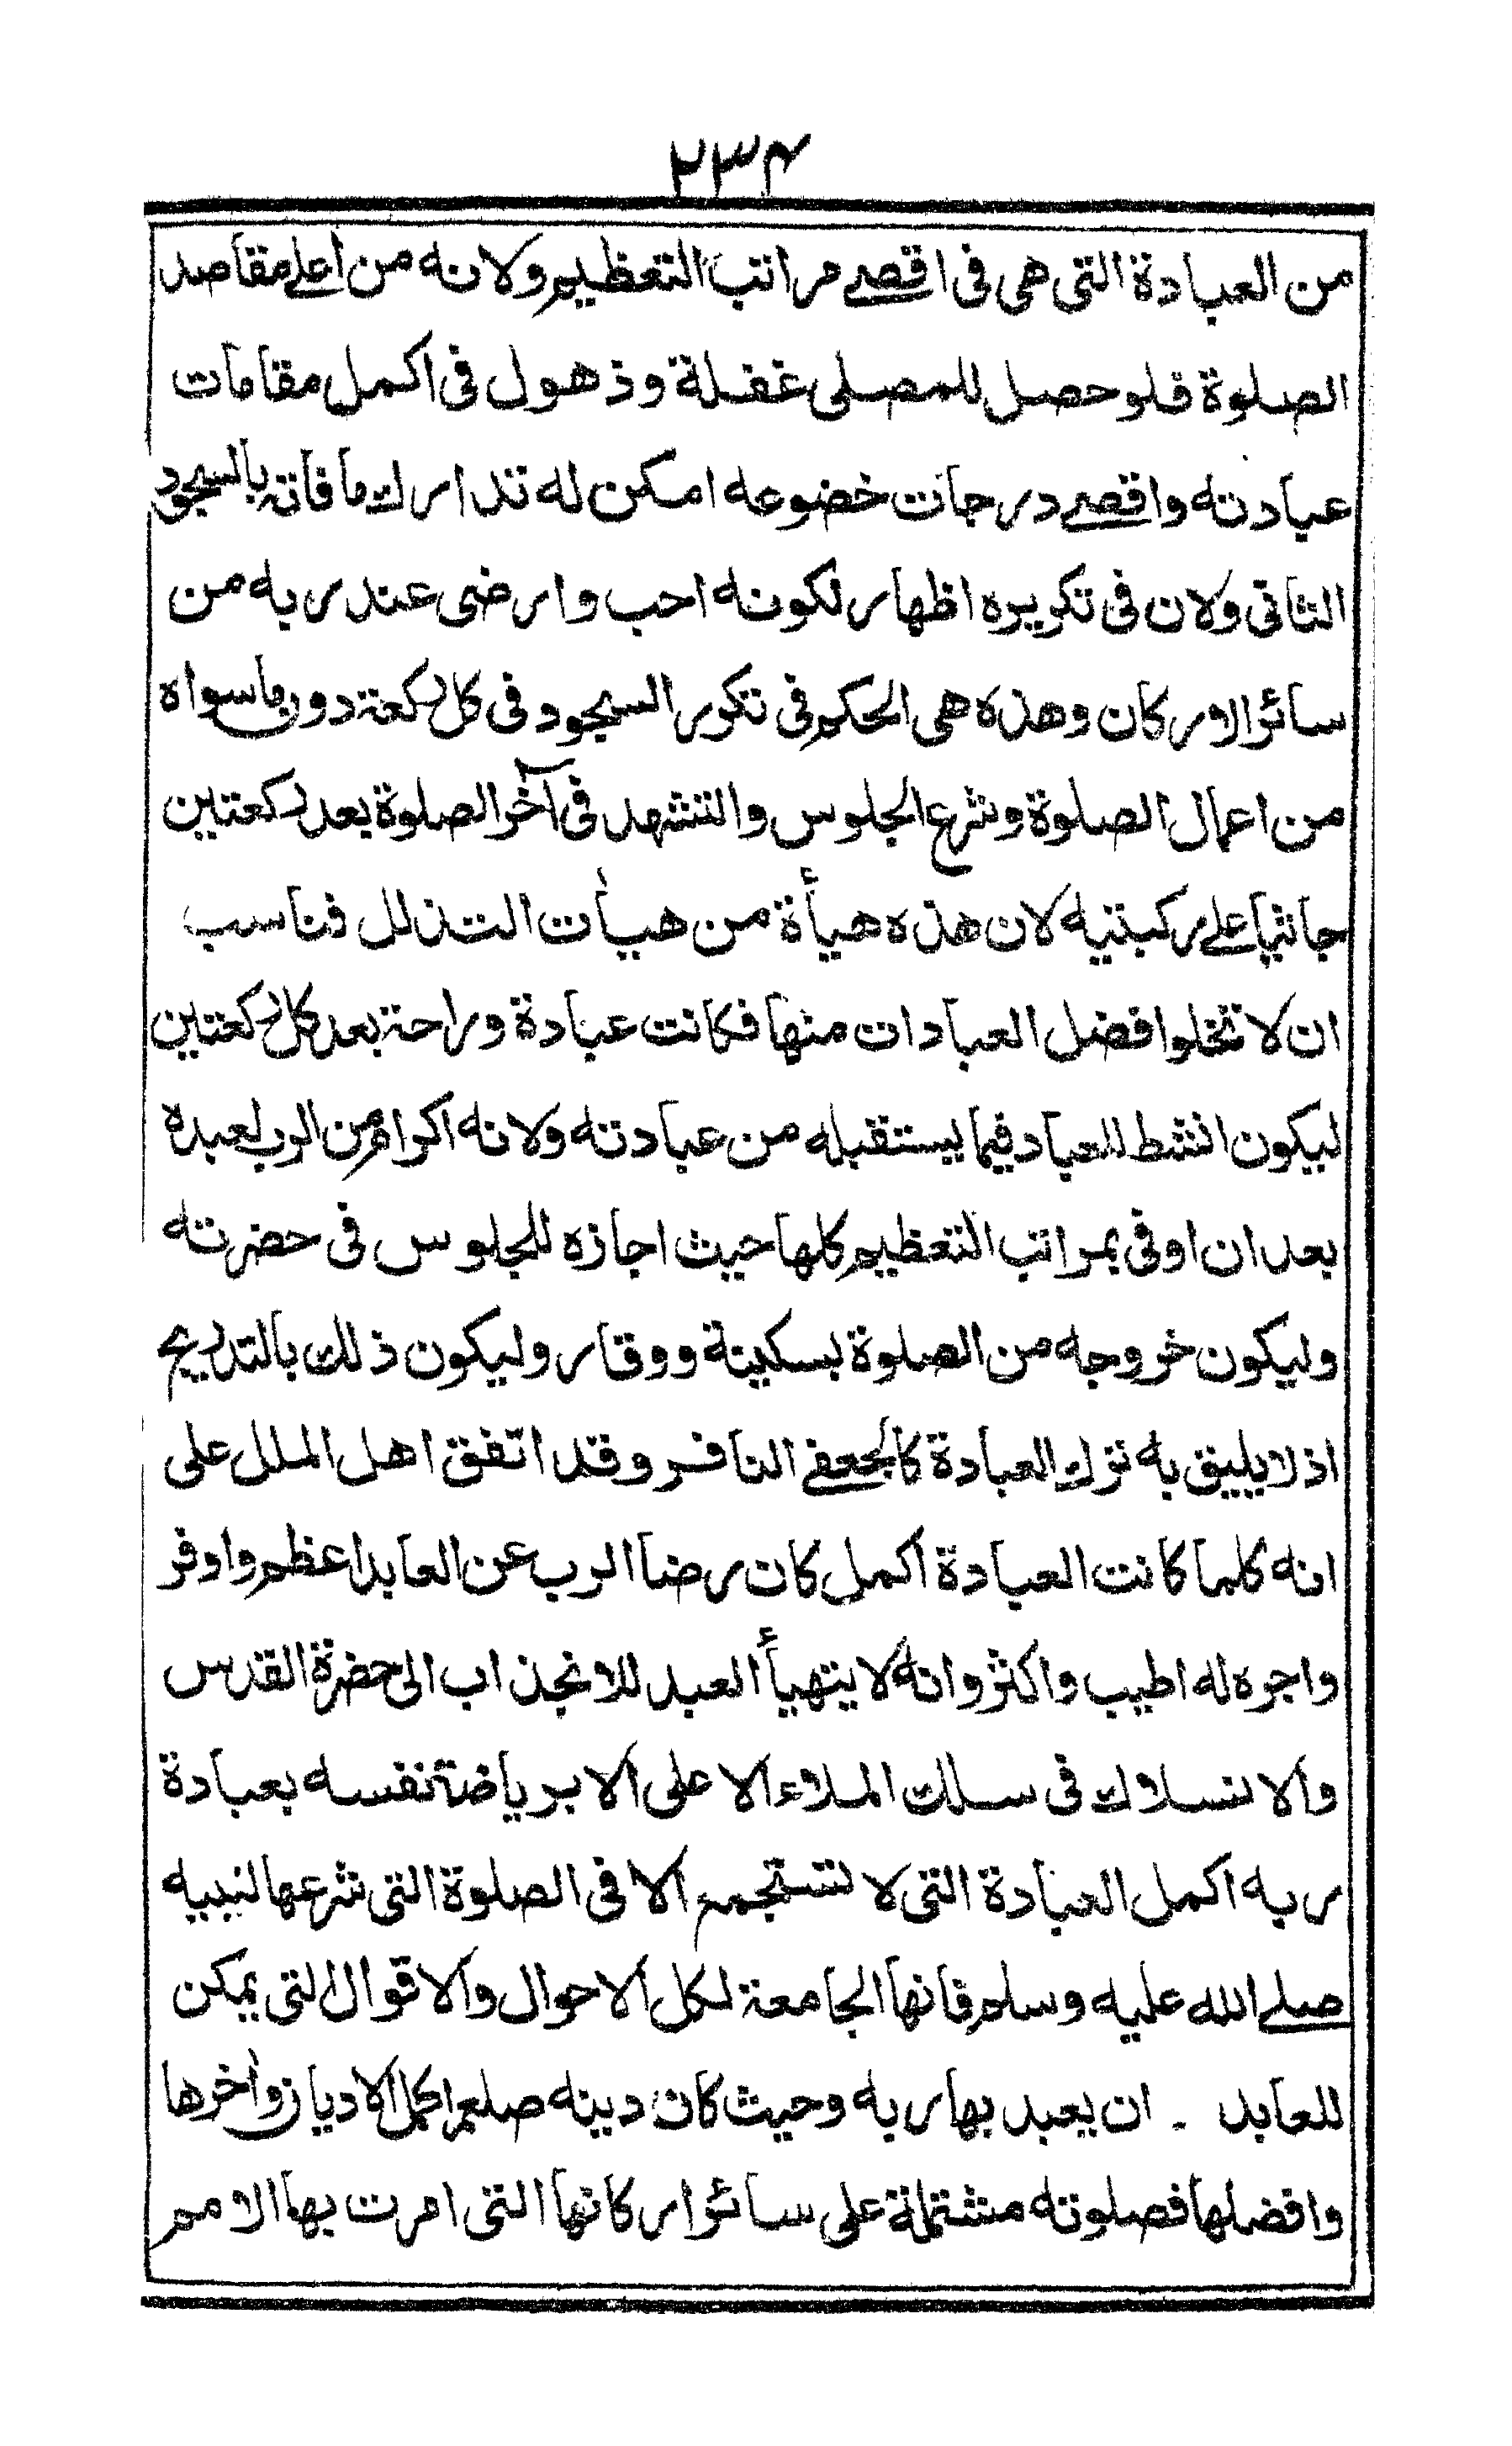 ٢٣٤
من العبادة التى هى فى اقصے مراتب التعظيم ولانه من اعلے مقاصد
الصلوة فلو حصل للمصلى غفلة وذهول فى اكمل مقامات
عبادته واقصے درجات خضوعه امكن له تدارك ما فاته بالسجود
الثانى ولان فى تكريره اظهار لكونه احب وارضى عند ربه من
سائر الاركان وهذه هى الحكم فى تكرر السجود فى كل ركعة دون ما سواه
من اعمال الصلوة وشرع الجلوس والتشهد فى آخر الصلوة بعد ركعتين
جاثيا علے ركبتيه لان هذه هيأة من هيأت التذلل فناسب
ان لا تخلوا فضل العبادات منها فكانت عبادة وراحة بعد كل ركعتين
ليكون انشط للعباد فيما يستقبله من عبادته ولانه اكرام من الرب لعبده
بعد ان اوفى بمراتب التعظيم كلها حيث اجازه للجلوس فى حضرته
وليكون خروجه من الصلوة بسكينة ووقار وليكون ذلك بالتدريج
اذ لا يليق به ترك العبادة كالجعفے النافر وقد اتفق اهل الملل على
انه كلما كانت العبادة اكمل كان رضا الرب عن العابد اعظم واوفر
واجره له اطيب واكثر وانه لا يتهيأ العبد للانجذاب الى حضرة القدس
والانسلاك فى سلك الملاء الا على الا برياضة نفسه بعبادة
ربه اكمل العبادة التى لا تستجمع الا فى الصلوة التى شرعها لنبيه
صلے الله عليه وسلم فانها الجامعة لكل الاحوال والاقوال التى يمكن
للعابد ۔ ان يعبد بها ربه وحيث كان دينه صلعم اكمل الاديان وآخرها
وافضلها فصلوته مشتملة على سائر اركانها التى امرت بها الامم